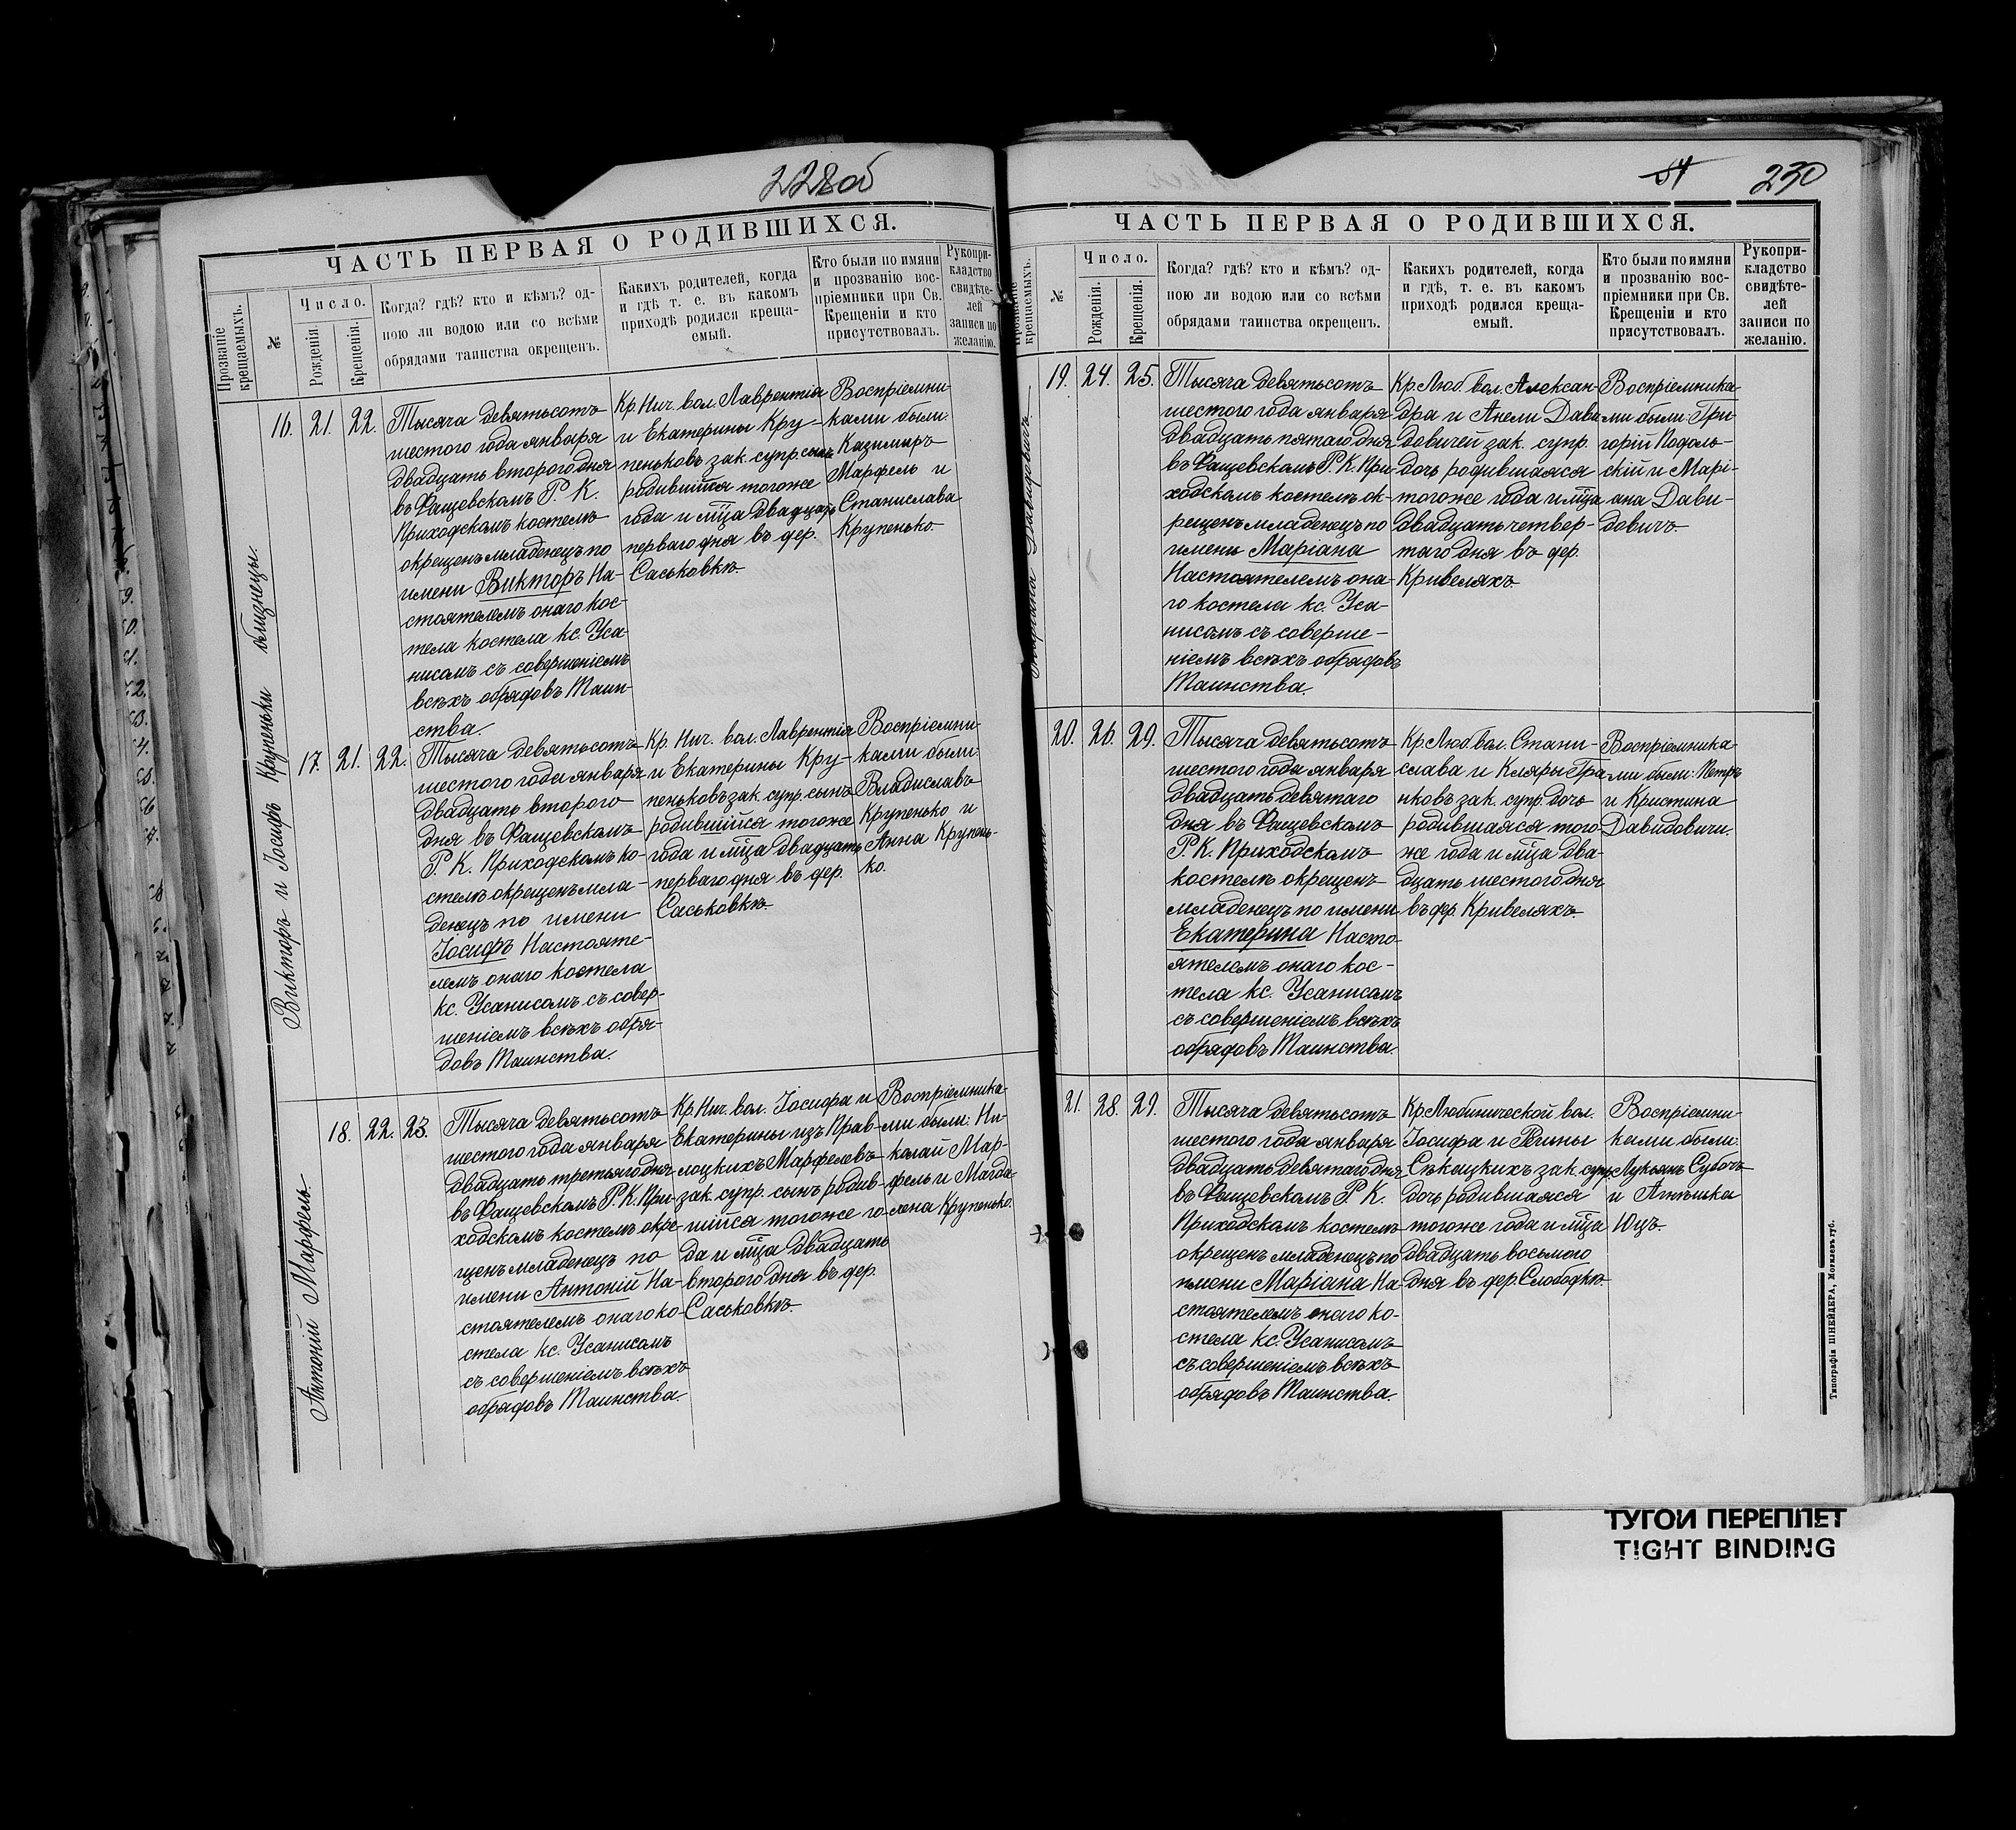 228об
ЧАСТЬ ПЕРВАЯ О РОДИВШИХСЯ.
Прозваніе крещаемыхъ.
№
Число.
Рожденія.
Крещенія.
Когда? гдѣ? кто и кѣмъ? од-
ною ли водою или со всѣми
обрядами таинства окрещенъ.
Какихъ родителей, когда
и гдѣ т. е. въ какомъ
приходѣ родился креща-
емый.
Кто были по имяни
и прозванію вос-
пріемники при Св.
Крещеніи и кто
присутствовалъ.
Рукопри-
кладство
свидѣте-
лей
записи по
желанію.
Викторъ и Іосифъ Крупеньки близнецы.
16. 21. 22.
Тысяча девятьсотъ
шестого года января
двадцать второго дня
въ Фащевскомъ Р. К.
Приходскомъ костелѣ
окрещенъ младенецъ по
имени Викторъ На-
стоятелемъ онаго кос-
тела костела кс. Уса-
нисомъ съ совершеніемъ
всѣхъ обрядовъ Таин-
ства.
Кр. Нич. вол. Лаврентія
и Екатерины Кру-
пеньковъ зак. супр. сынъ
родившійся тогоже
года и мца двадцать
перваго дня въ дер.
Саськовкѣ.
Воспріемни-
ками были:
Казимиръ
Марфель и
Станислава
Крупенько.
17. 21. 22.
Тысяча девятьсотъ
шестого года января
двадцать второго
дня въ Фащевскомъ
Р. К. Приходскомъ ко-
стелѣ окрещенъ мла-
денецъ по имени
Іосифъ Настояте-
лемъ онаго костела
кс. Усанисомъ съ совер-
шеніемъ всѣхъ обря-
довъ Таинства.
Кр. Нич. вол. Лаврентія
и Екатерины Кру-
пеньковъ зак. супр. сынъ
родившійся тогоже
года и мца двадцать
перваго дня въ дер.
Саськовкѣ.
Воспріемни-
ками были:
Владиславъ
Крупенько и
Анна Крупень-
ко.
Антоній Марфель.
18. 22. 23.
Тысяча девятьсотъ
шестого года января
двадцать третьяго дня
въ Фащевскомъ Р. К. При-
ходскомъ костелѣ окре-
щенъ младенецъ по
имени Антоній На-
стоятелемъ онаго ко-
стела кс. Усанисомъ
съ совершеніемъ всѣхъ
обрядовъ Таинства.
Кр. Нич. вол. Іосифа и
Екатерины изъ Прав-
лоцкихъ Марфелевъ
зак. супр. сынъ родив-
шійся тогоже го-
да и мца двадцать
второго дня въ дер.
Саськовкѣ.
Воспріемника-
ми были: Ни-
колай Мар-
фель и Магда-
лена Крупенько.
230
ЧАСТЬ ПЕРВАЯ О РОДИВШИХСЯ.
крещаемыхъ.
№
Число.
Рожденія.
Крещенія.
Когда? гдѣ? кто и кѣмъ? од-
ною ли водою или со всѣми
обрядами таинства окрещенъ.
Какихъ родителей, когда
и гдѣ, т. е. въ какомъ
приходѣ родился креща-
емый.
Кто были по имяни
и прозванію вос-
пріемники при Св.
Крещеніи и кто
присутствовалъ.
Рукопри-
кладство
свидѣте-
лей
записи по
желанію.
Давидовичъ
19. 24. 25.
Тысяча девятьсотъ
шестого года января
двадцать пятаго дня
въ Фащевскомъ Р. К. При-
ходскомъ костелѣ ок-
рещенъ младенецъ по
имени Маріана
Настоятелемъ она-
го костела кс. Уса-
нисомъ съ соверше-
ніемъ всѣхъ обрядовъ
Таинства.
Кр. Люб. вол. Алексан-
дра и Анели Дави-
довичей зак. супр.
дочь родившаяся
тогоже года и мца
двадцать четвер-
таго дня въ дер.
Кривеляхъ.
Воспріемника-
ми были: Гри-
горій Подоль-
скій и Марі-
ана Дави-
довичъ.
20. 26. 29.
Тысяча девятьсотъ
шестого года января
двадцать девятаго
дня въ Фащевскомъ
Р. К. Приходскомъ
костелѣ окрещенъ
младенецъ по имени
Екатерина Насто-
ятелемъ онаго кос-
тела кс. Усанисомъ
съ совершеніемъ всѣхъ
обрядовъ Таинства.
Кр. Люб. вол. Стани-
слава и Кляры Гра-
нковъ зак. супр. дочь
родившаяся того
же года и мца два-
дцать шестого дня
въ дер. Кривеляхъ.
Воспріемника-
ми были: Петръ
и Кристина
Давидовичи.
21. 28. 29.
Тысяча девятьсотъ
шестого года января
двадцать девятаго дня
въ Фащевскомъ Р. К.
Приходскомъ костелѣ
окрещенъ младенецъ по
имени Маріана На-
стоятелемъ онаго ко-
стела кс. Усанисомъ
съ совершеніемъ всѣхъ
обрядовъ Таинства.
Кр. Любинической вол.
Іосифа и Регины
зак. супр.
дочь родившаяся
тогоже года и мца
двадцать восьмого
дня въ дер. Слободкѣ.
Воспріемни-
ками были:
Лукьянъ Суботъ
и Агнѣшка
Юцъ.
Типографія ШНЕЙДЕРА, Могилевъ губ.
ТУГОЙ ПЕРЕПЛЕТ
TIGHT BINDING